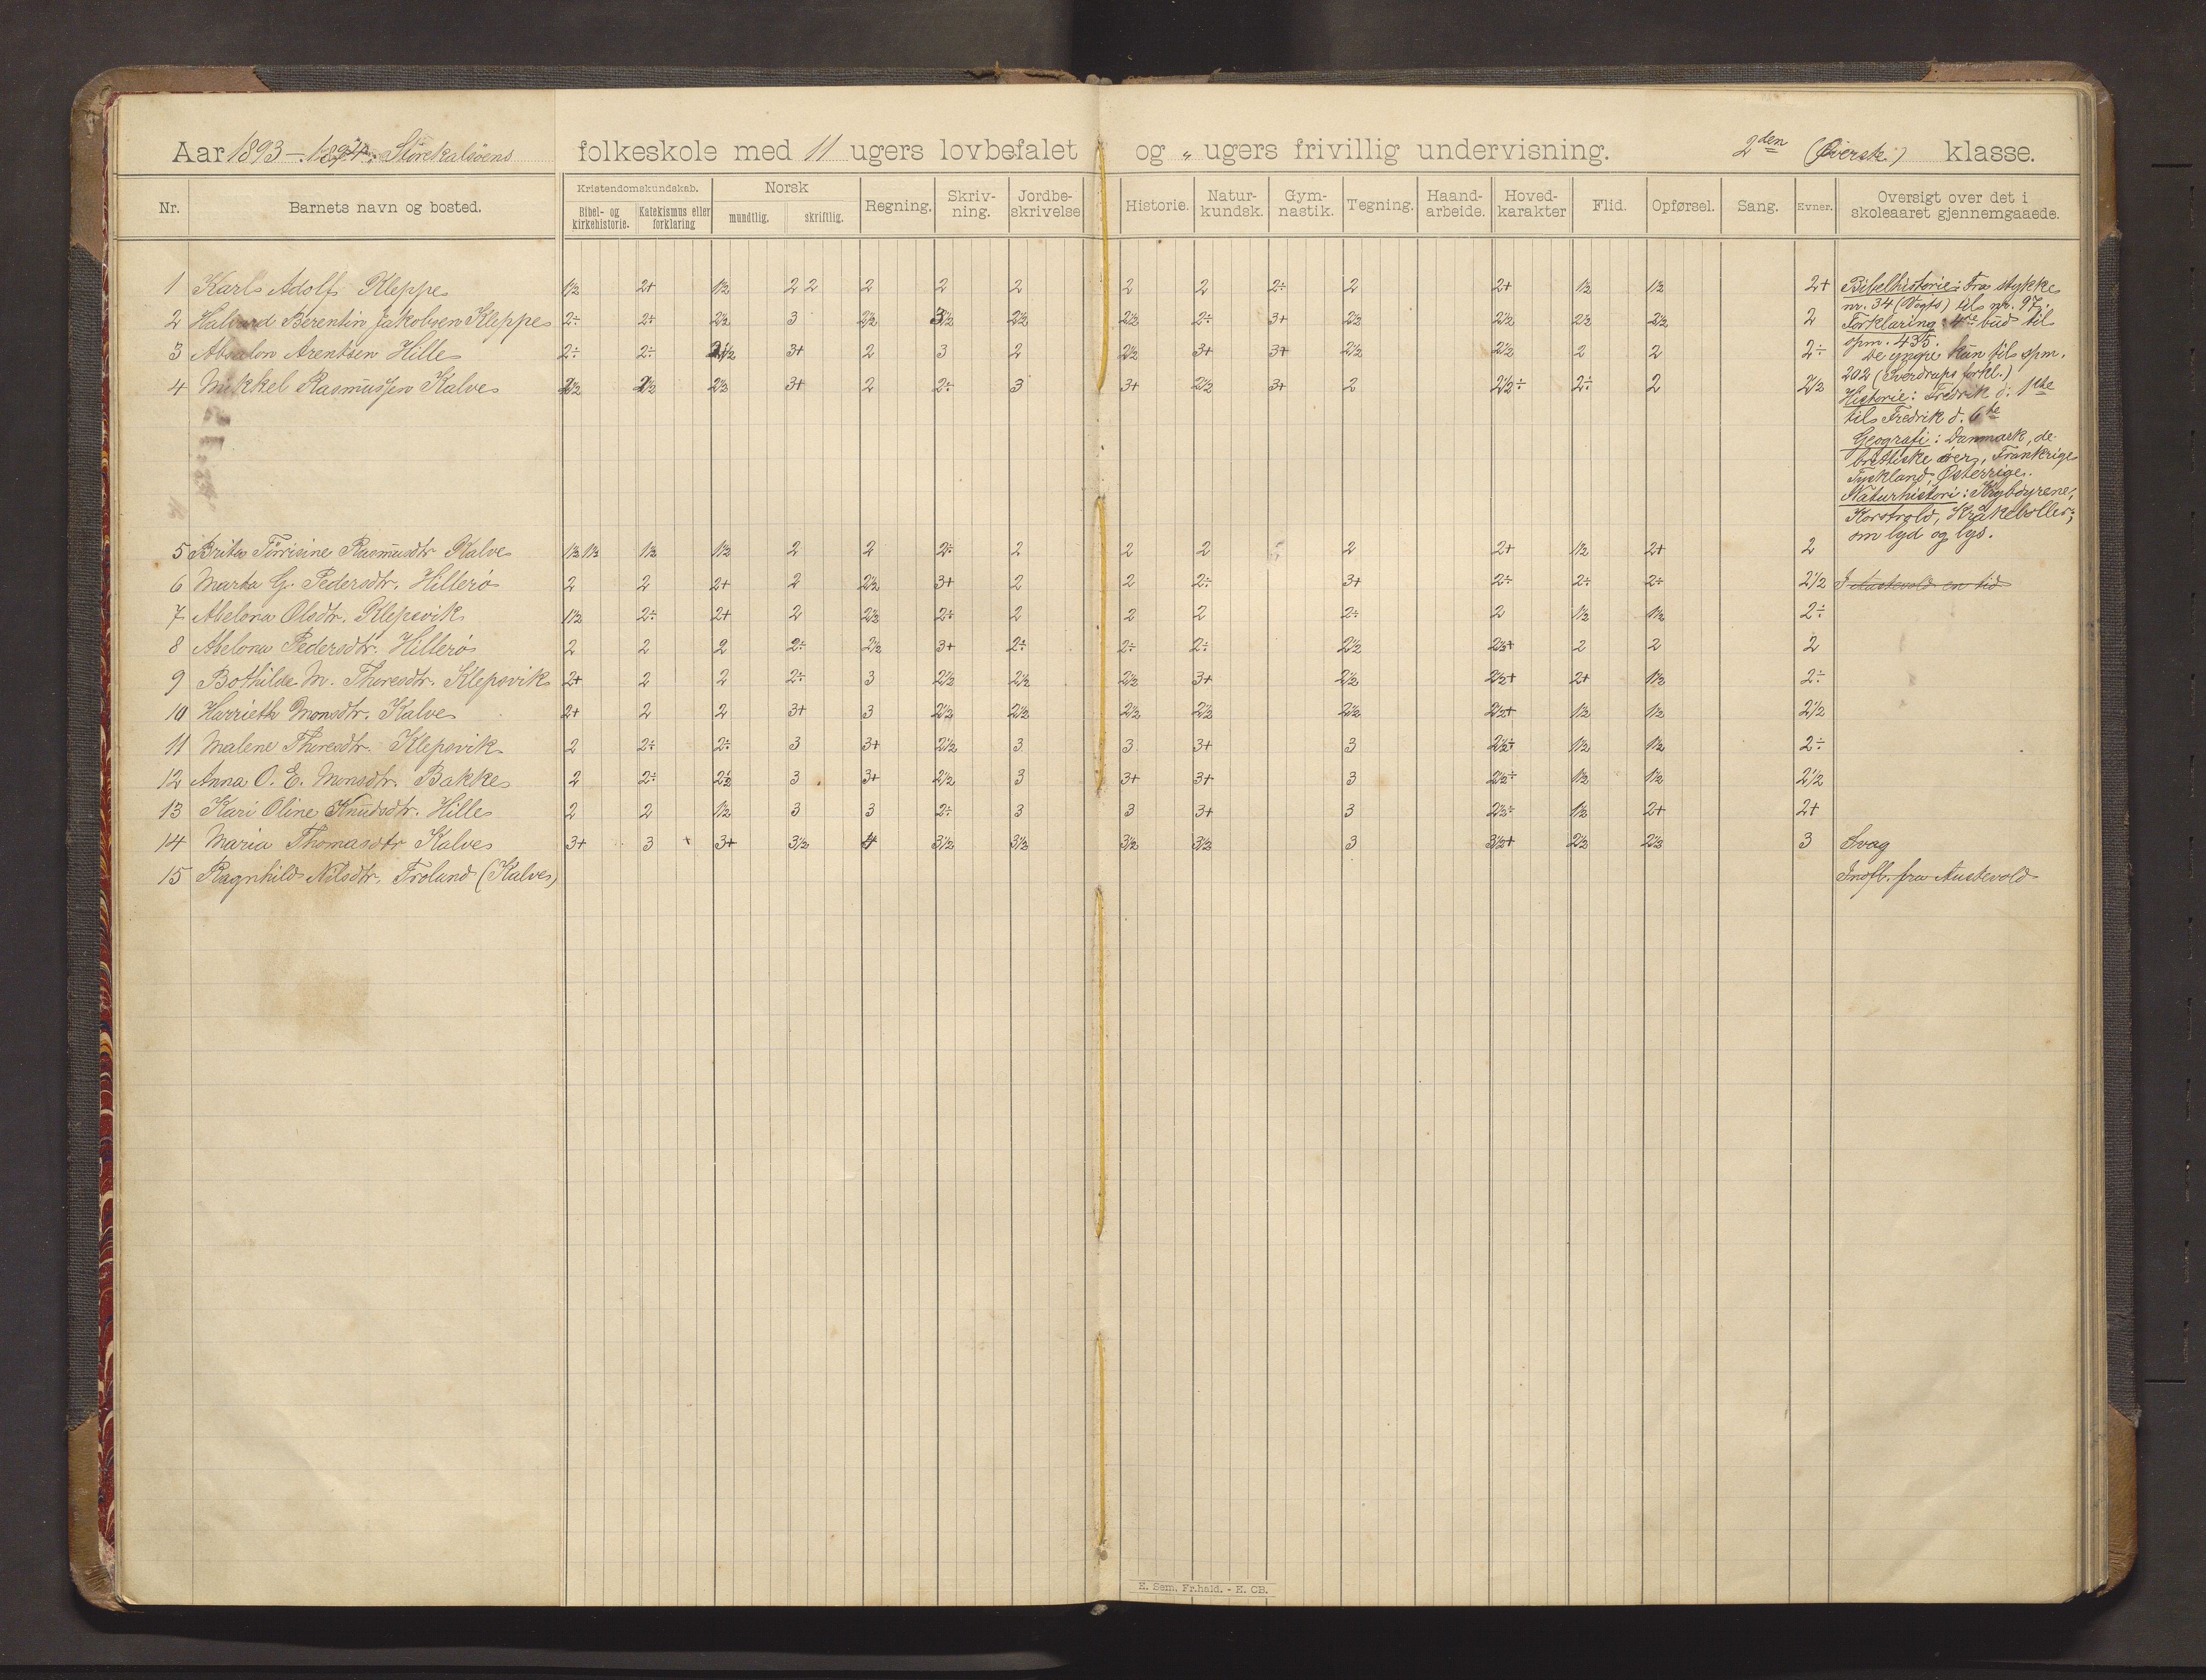 Aar 1893 – 1894. Storekalsøens folkeskole med 11 ugers lovbefalet og „ ugers frivillig undervisning. 2den (Øversk.) klasse.
Nr. Barnets navn og bosted. Kristendomskundskab. Bibel- og kirkehistorie. Katekismus eller forklaring Norsk mundtlig. skriftlig. Regning. Skriv-ning. Jordbe-skrivelse Historie. Natur-kundsk. Gym-nastik. Tegning. Haand-arbeide. Hoved-karakter Flid. Opførsel. Sang. Evner. Oversigt over det i skoleaaret gjennemgaaede.
1 Karl Adolf Kleppe 1½ 2+ 1½ 2 2 2 2 2 2 2 2÷ 2 2+ 1½ 1½ 2+
2 Halvard Berentin Jakobsen Kleppe 2÷ 2÷ 2½ 3 2½ 3½ 2½ 2½ 2÷ 3+ 2½ 2½ 2½ 2½ 2
3 Absalon Arentsen Hille 2÷ 2÷ 2½ 3+ 2 3 2 2½ 3+ 3+ 2½ 2½ 2 2 2÷
4 Mikkel Rasmussen Kalve 2½ 2½ 2½ 3+ 2 2÷ 3 3+ 2½ 3+ 2 2½÷ 2÷ 2 2½
Bibelhistorie: Fra stykke
nr. 34 (Vogts) til nr. 97.
Forklaring: 4de bud til
spm. 435.
De yngre kun til spm.
202 (Sverdrups forkl.)
Historie: Fredrik d. 1ste
til Fredrik d. 6te
Geografi: Danmark, de
brittiske øer, Frankrige
Tyskland, Østerrige.
Naturhistori: Krybdyrene,
Korstrold, Kråkeboller;
om lyd og lys.
5 Brita Tørrisine Rasmusdtr Kalve 1½ 1½ 1½ 1½ 2 2 2÷ 2 2 2 2 2+ 1½ 2+ 2
6 Marta G. Pedersdtr. Hillerø 2 2 2+ 2 2½ 3+ 2 2 2÷ 3+ 2÷ 2÷ 2÷ 2½ I Austevold en tid
7 Abelona Olsdtr. Klepsvik 1½ 2÷ 2+ 2 2½ 2÷ 2 2 2 2÷ 2 1½ 1½ 2÷
8 Abelona Pedersdtr. Hillerø 2 2 2 2÷ 2½ 3+ 2÷ 2÷ 2÷ 2½ 2½+ 2 2 2
9 Bothilde M. Theresdtr. Klepsvik 2+ 2 2 2÷ 3 2½ 2½ 2½ 3+ 2½ 2½+ 2+ 1½ 2÷
10 Harrieth Monsdtr. Kalve 2+ 2 2 3+ 3 2½ 2½ 2½ 2½ 2½ 2½+ 1½ 1½ 2½
11 Malene Theresdtr. Klepsvik 2 2÷ 2÷ 3 3+ 2½ 3 3 3+ 3 2½÷ 1½ 1½ 2÷
12 Anna O. E. Monsdtr. Bakke 2 2÷ 2½ 3 3+ 2½ 3 3+ 3+ 3 2½÷ 1½ 1½ 2½
13 Kari Oline Knudsdtr. Hille 2 2 1½ 3 3 2÷ 3 3 3+ 3 2½÷ 1½ 2+ 2+
14 Maria Thomasdtr Kalve 3+ 3 + 3+ 3½ 4 3½ 3½ 3½ 3½ 3 3½+ 2½ 2½ 3 Svag
15 Ragnhild Nilsdtr. Frolund (Kalve) Indfl. fra Austevold
E. Sem, Fr.hald. - E. CB.